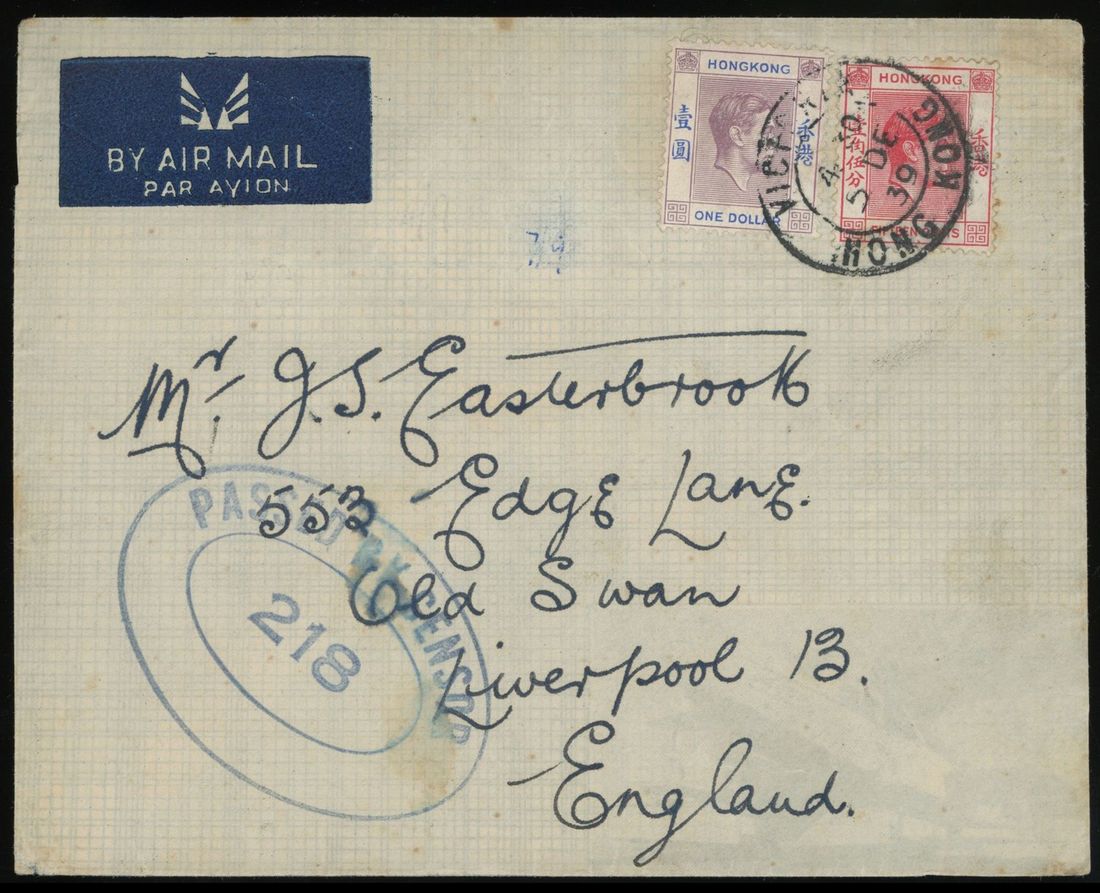 BY AIR MAIL
PAR AVION
HONGKONG
壹圓
香港
ONE DOLLAR
HONGKONG
壹角伍分
香港
VICTORIA
5 DE
39
HONG KONG
Mr. J. S. Easterbrook
553 Edge Lane.
Old Swan
Liverpool 13.
England.
PASSED BY CENSOR
218